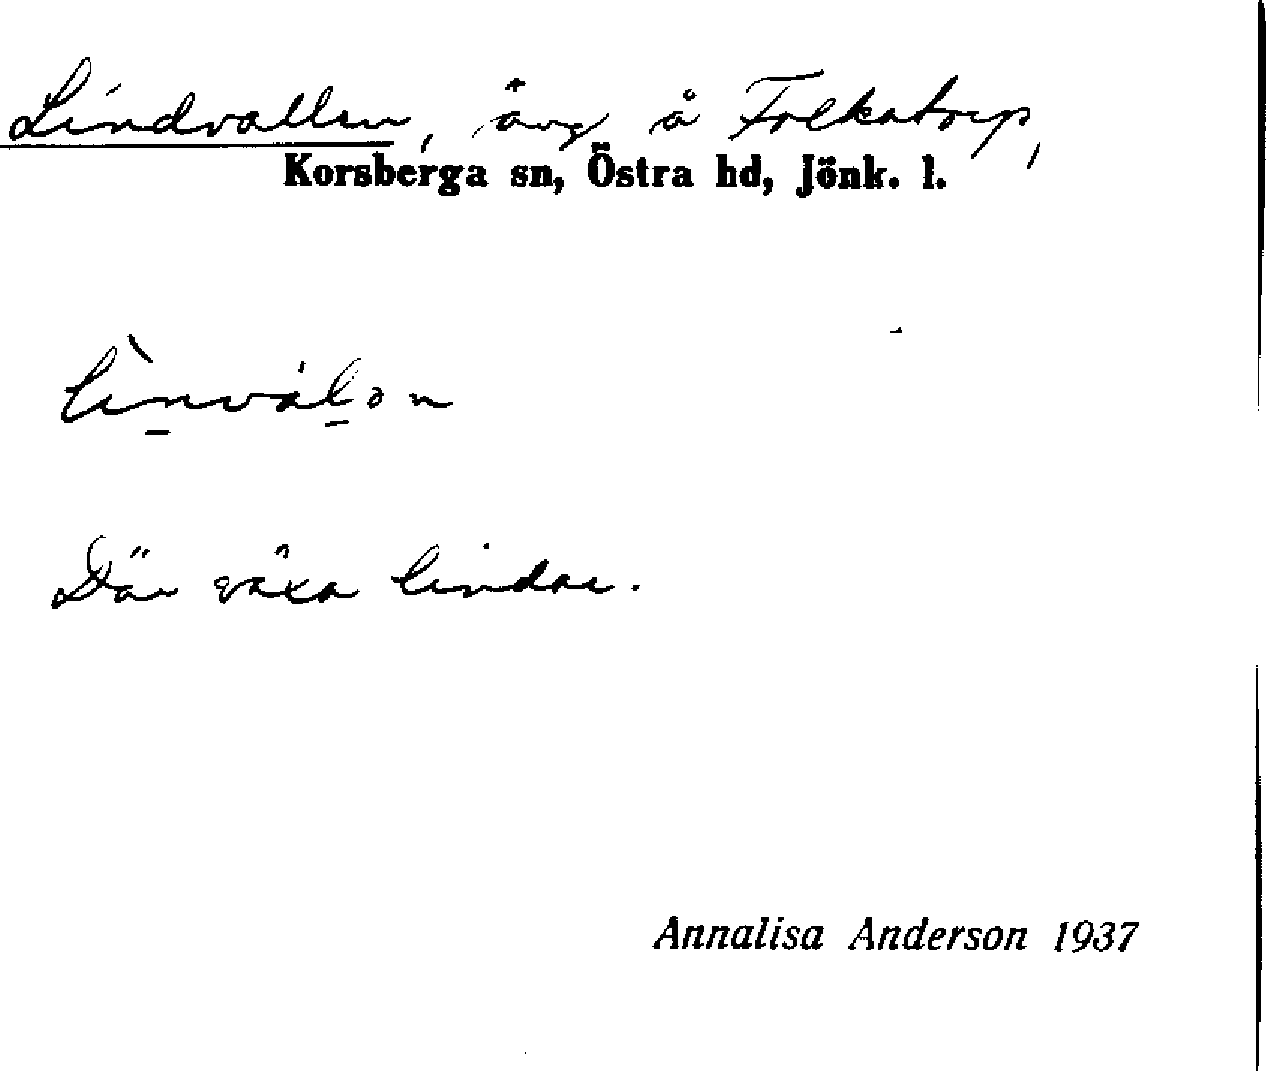 Lindvallen, äng å Folkatorp,
Korsberga sn, Östra hd, Jönk. l.
lìnválən
Där växa lindar.
Annalisa Anderson 1937